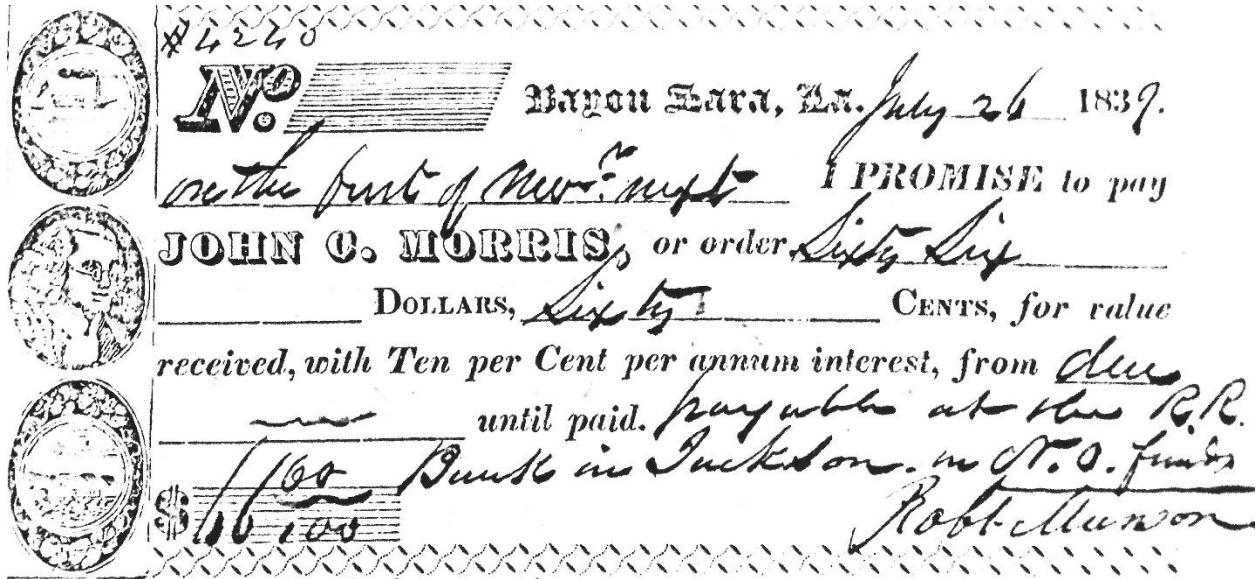 #4240
No. Bayou Sara, La. July 26 1839.
on the first of Novr. next I PROMISE to pay
JOHN C. MORRIS, or order Sixty Six
DOLLARS, Sixty CENTS, for value
received, with Ten per Cent per annum interest, from due
until paid. payable at the R.R.
$66 60/100 Bank in Jackson in N.O. funds
Robt Munson